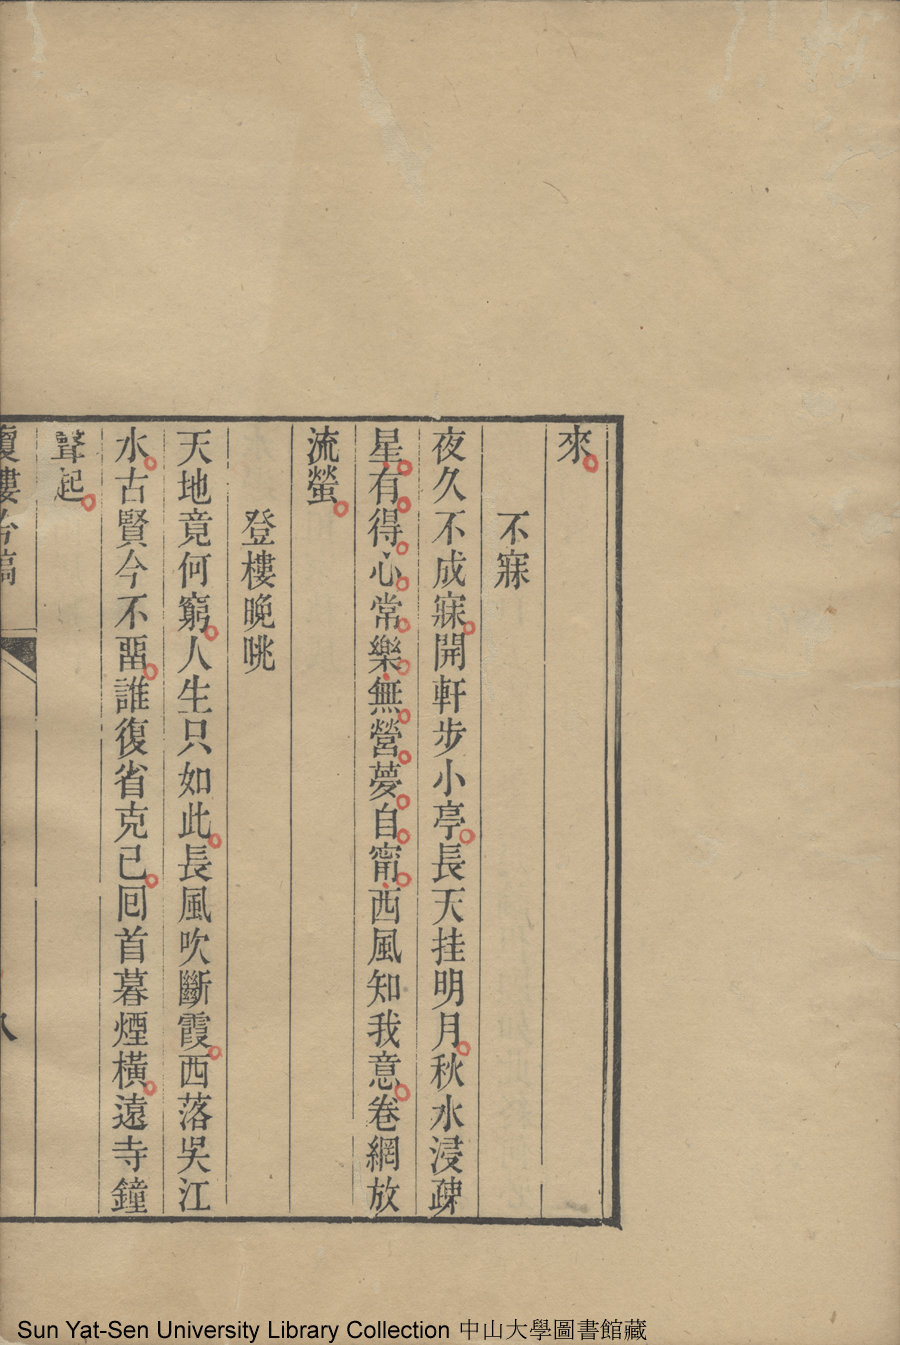 來
不寐
夜久不成寐開軒步小亭長天挂明月秋水浸疎
星有得心常樂無營夢自甯西風知我意卷網放
流螢
登樓晚眺
天地竟何窮人生只如此長風吹斷霞西落吳江
水古賢今不畱誰復省克己囘首暮煙橫遠寺鐘
聲起
Sun Yat-Sen University Library Collection 中山大學圖書館藏